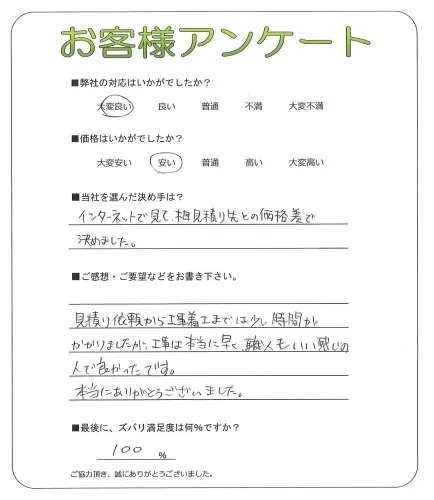 お客様アンケート
■弊社の対応はいかがでしたか？
大変良い 良い 普通 不満 大変不満
■価格はいかがでしたか？
大変安い 安い 普通 高い 大変高い
■当社を選んだ決め手は？
インターネットで見て、相見積り先との価格差で
決めました。
■ご感想・ご要望などをお書き下さい。
見積り依頼から工事着工までは少し時間が
かかりましたが、工事は本当に早く、職人もいい感じの
人で良かったです。
本当にありがとうございました。
■最後に、ズバリ満足度は何％ですか？
100 %
ご協力頂き、誠にありがとうございました。